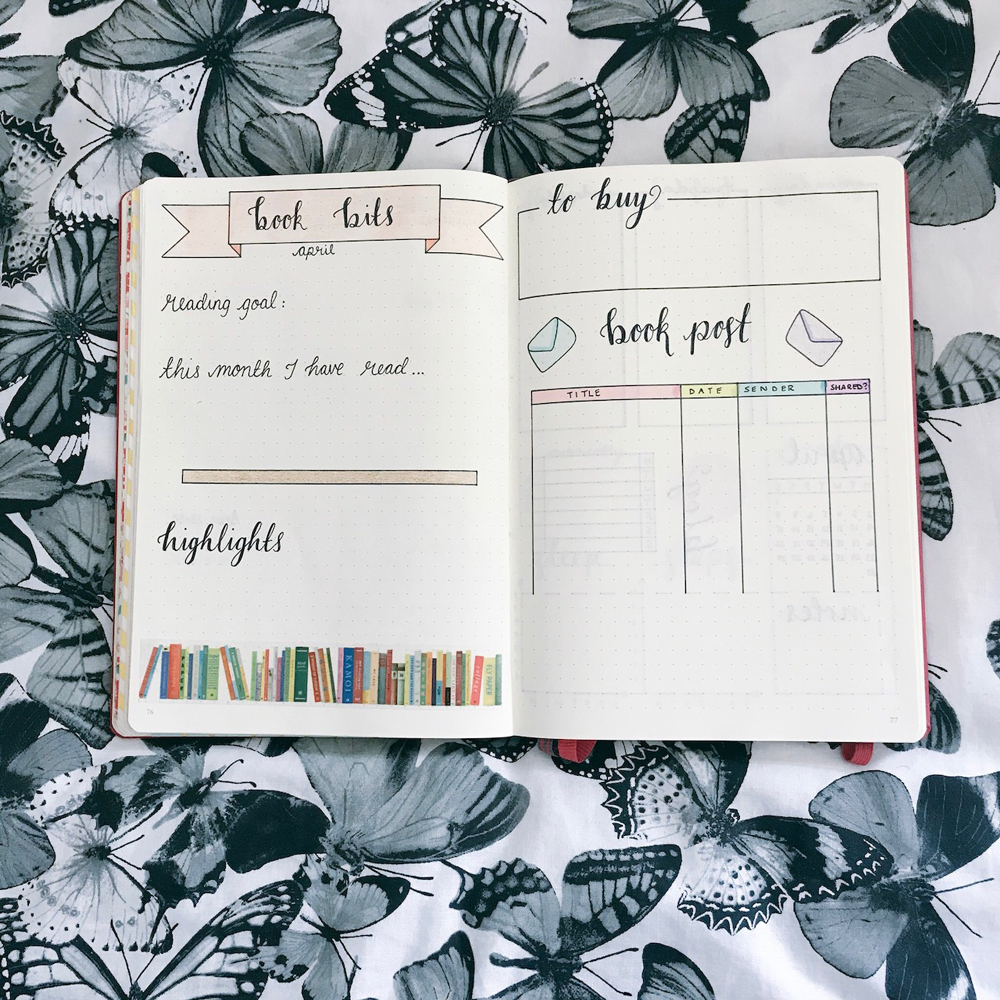 book bits
april
reading goal:
this month I have read...
highlights
KAMOI
76
to buy
book post
TITLE DATE SENDER SHARED?
77